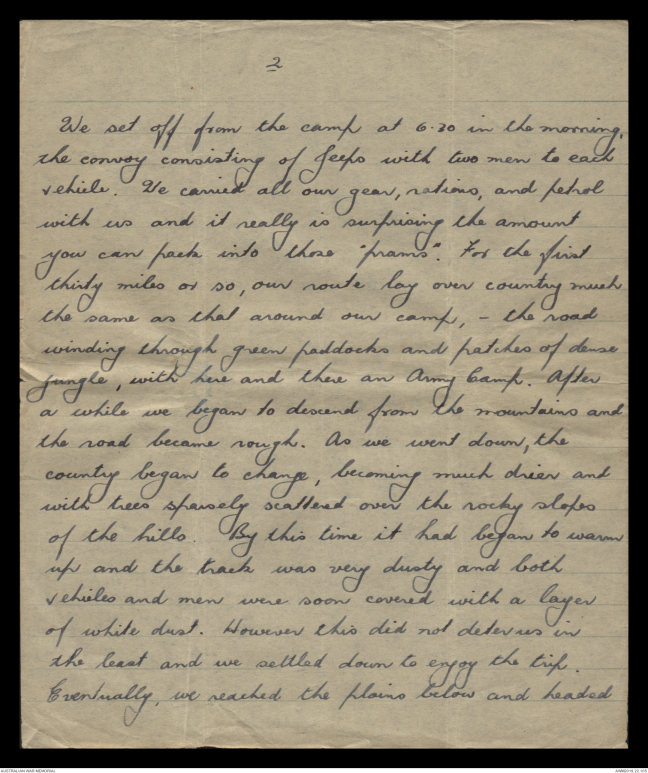 2
We set off from the camp at 6.30 in the morning,
the convoy consisting of Jeeps with two men to each
vehicle. We carried all our gear, rations, and petrol
with us and it really is surprising the amount
you can pack into those "prams". For the first
thirty miles or so, our route lay over country much
the same as that around our camp, - the road
winding through green paddocks and patches of dense
jungle, with here and there an Army Camp. After
a while we began to descend from the mountains and
the road became rough. As we went down, the
country began to change, becoming much drier and
with trees sparsely scattered over the rocky slopes
of the hills. By this time it had began to warm
up and the track was very dusty and both
vehicles and men were soon covered with a layer
of white dust. However this did not deter us in
the least and we settled down to enjoy the trip.
Eventually, we reached the plains below and headed
AUSTRALIAN WAR MEMORIAL